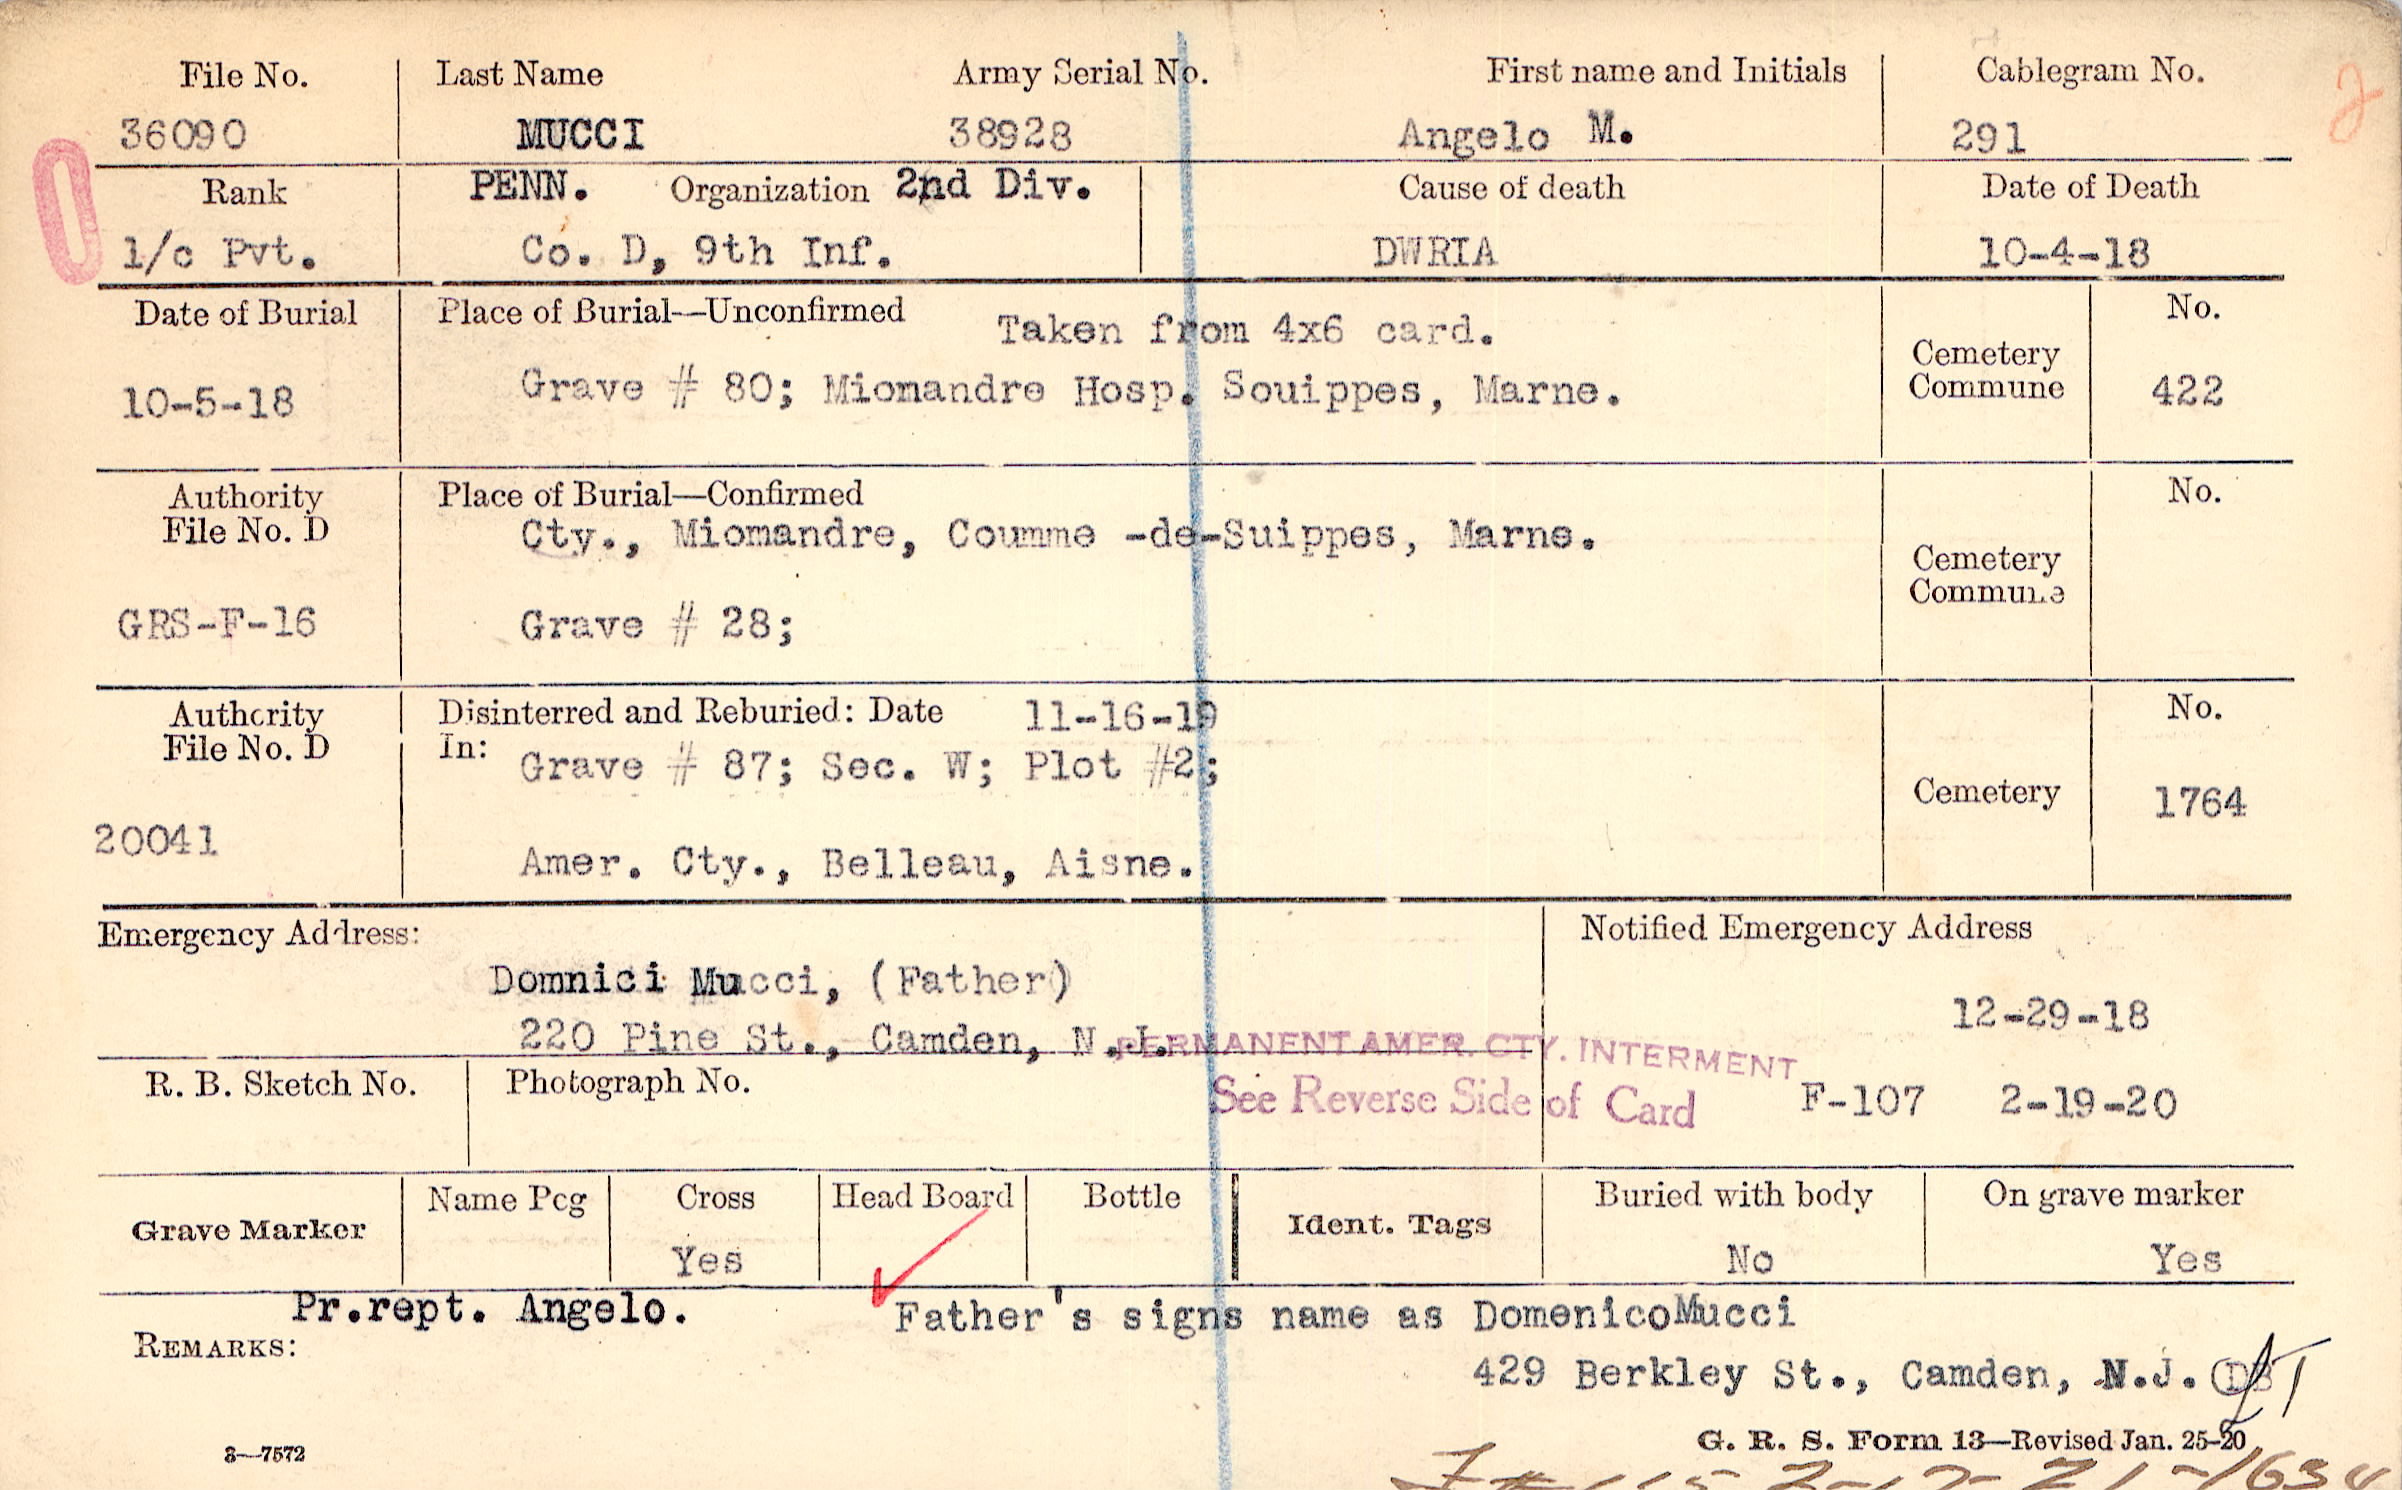 File No. Last Name Army Serial No. First name and Initials Cablegram No. 2
36090 MUCCI 38928 Angelo M. 291
0
Rank PENN. Organization 2nd Div. Cause of death Date of Death
1/c Pvt. Co. D, 9th Inf. DWRIA 10-4-18
Date of Burial Place of Burial—Unconfirmed Taken from 4x6 card. No.
10-5-18 Grave # 80; Miomandre Hosp. Souippes, Marne. Cemetery
Commune 422
Authority Place of Burial—Confirmed No.
File No. D Cty., Miomandre, Coumme -de-Suippes, Marne.
Cemetery
Commune
GRS-F-16 Grave # 28;
Authority Disinterred and Reburied: Date 11-16-19 No.
File No. D In: Grave # 87; Sec. W; Plot #2;
Cemetery 1764
20041 Amer. Cty., Belleau, Aisne.
Emergency Address: Notified Emergency Address
Domnici Mucci, (Father) 12-29-18
220 Pine St., Camden, N.J.
PERMANENT AMER. CTY. INTERMENT
R. B. Sketch No. Photograph No. See Reverse Side of Card F-107 2-19-20
Grave Marker Name Peg Cross Head Board Bottle Ident. Tags Buried with body On grave marker
Yes No Yes
Pr.rept. Angelo. Father's signs name as DomenicoMucci
REMARKS:
429 Berkley St., Camden, N.J.
3—7572 G. R. S. Form 13—Revised Jan. 25-20